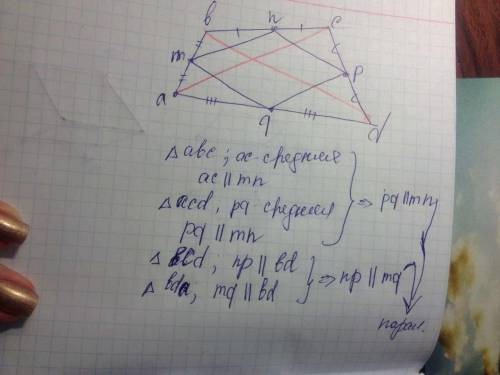 b n c
m p
a q d
△ abc ; ac средняя
ac || mn
△ acd, pq средняя
pq || mn
⇒ pq || mn
△ bcd ; np || bd
△ bda ; mq || bd
⇒ np || mq
парал.